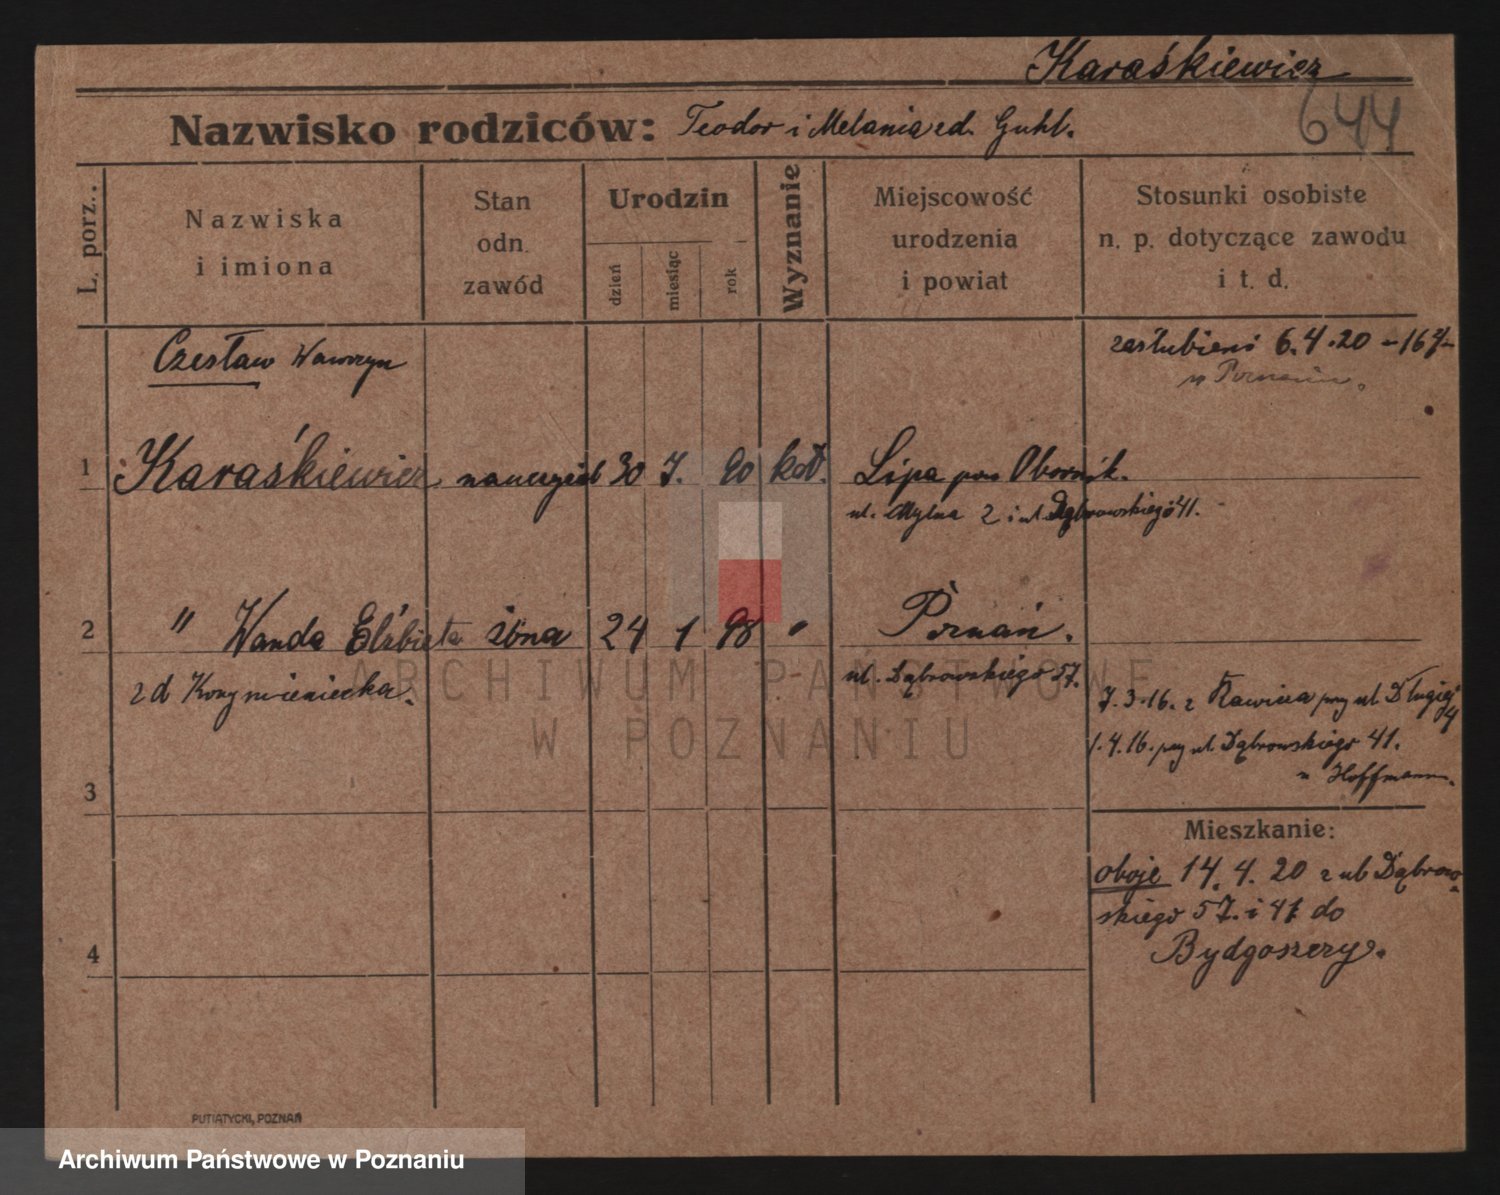 Karaśkiewicz
644
Nazwisko rodziców: Teodor i Melania zd. Guhl.
L. porz..
Nazwiska
i imiona
Stan
odn.
zawód
Urodzin
dzień
miesiąc
rok
Wyznanie
Miejscowość
urodzenia
i powiat
Stosunki osobiste
n. p. dotyczące zawodu
i t. d.
Czesław Wawrzyn
zaślubieni 6.4.20
w Poznaniu.
1 Karaśkiewicz nauczyciel 30 7. 90 kat. Lipa pow Obornik.
ul. Młyna 2 i ul. Dąbrowskiego 41.
2 " Wanda Elżbieta żona 24 1 98 " Poznań.
zd Krzymieniecka.
ul. Dąbrowskiego 57.
7.3.16. z Rawicza przy ul Długiej 4
1.4.16. przy ul. Dąbrowskiego 41.
u Hoffmann.
3
Mieszkanie:
oboje 14.4.20 z ul Dąbrow-
skiego 57. i 41 do
Bydgoszczy.
4
ARCHIWUM PAŃSTWOWE
W POZNANIU
PUTIATYCKI, POZNAŃ
Archiwum Państwowe w Poznaniu